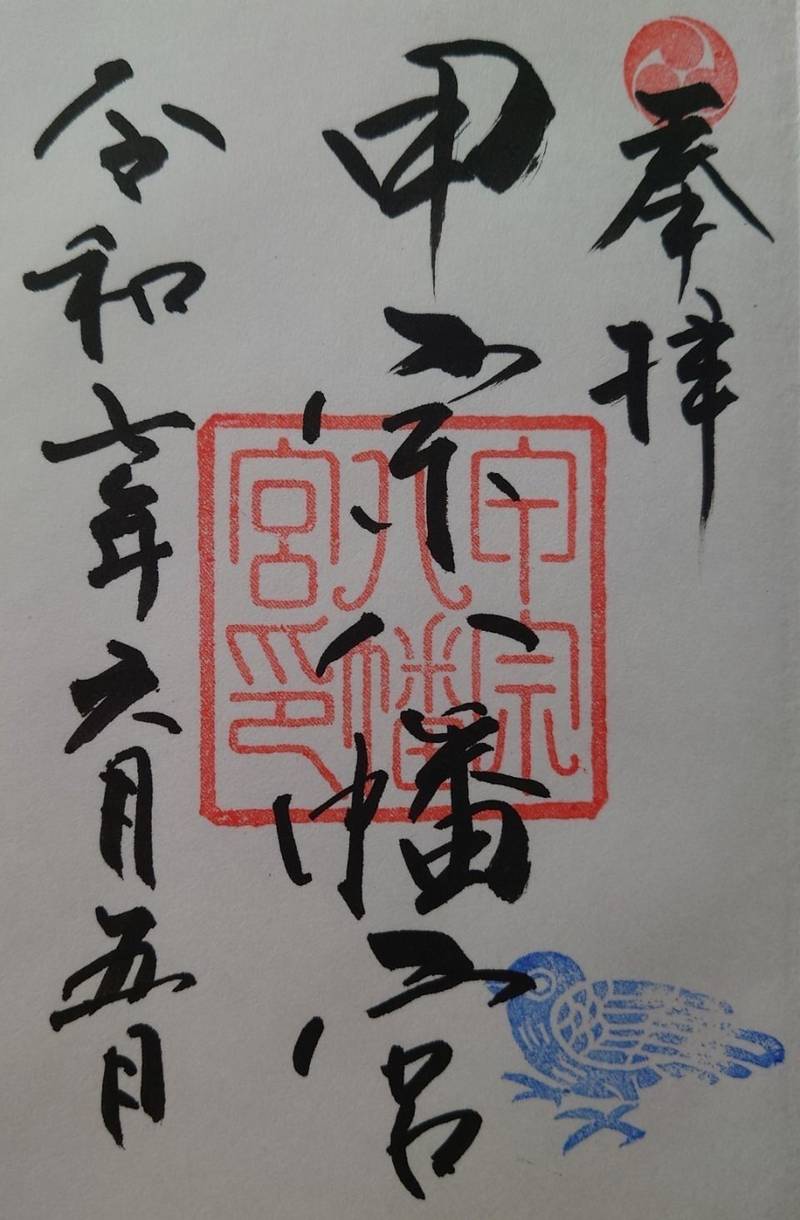 奉拝
甲宗八幡宮
令和七年六月五日
甲宗
八幡
宮印